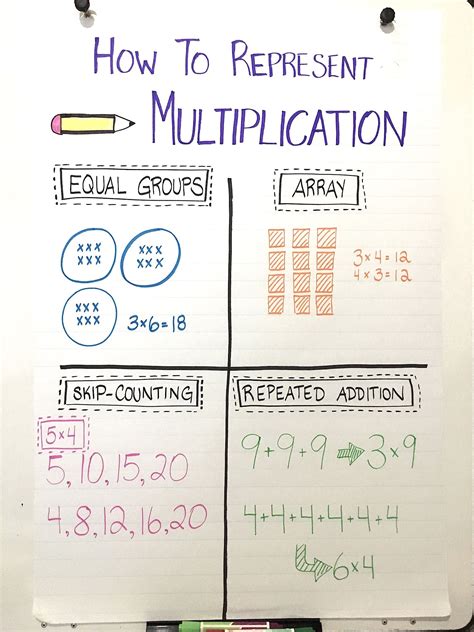 HOW TO REPRESENT
MULTIPLICATION
EQUAL GROUPS
xxx
xxx
xxx
xxx
xxx
xxx
3×6=18
ARRAY
3×4=12
4×3=12
SKIP-COUNTING
5×4
5,10,15,20
4,8,12,16,20
REPEATED ADDITION
9+9+9 → 3×9
4+4+4+4+4+4
↳ 6×4